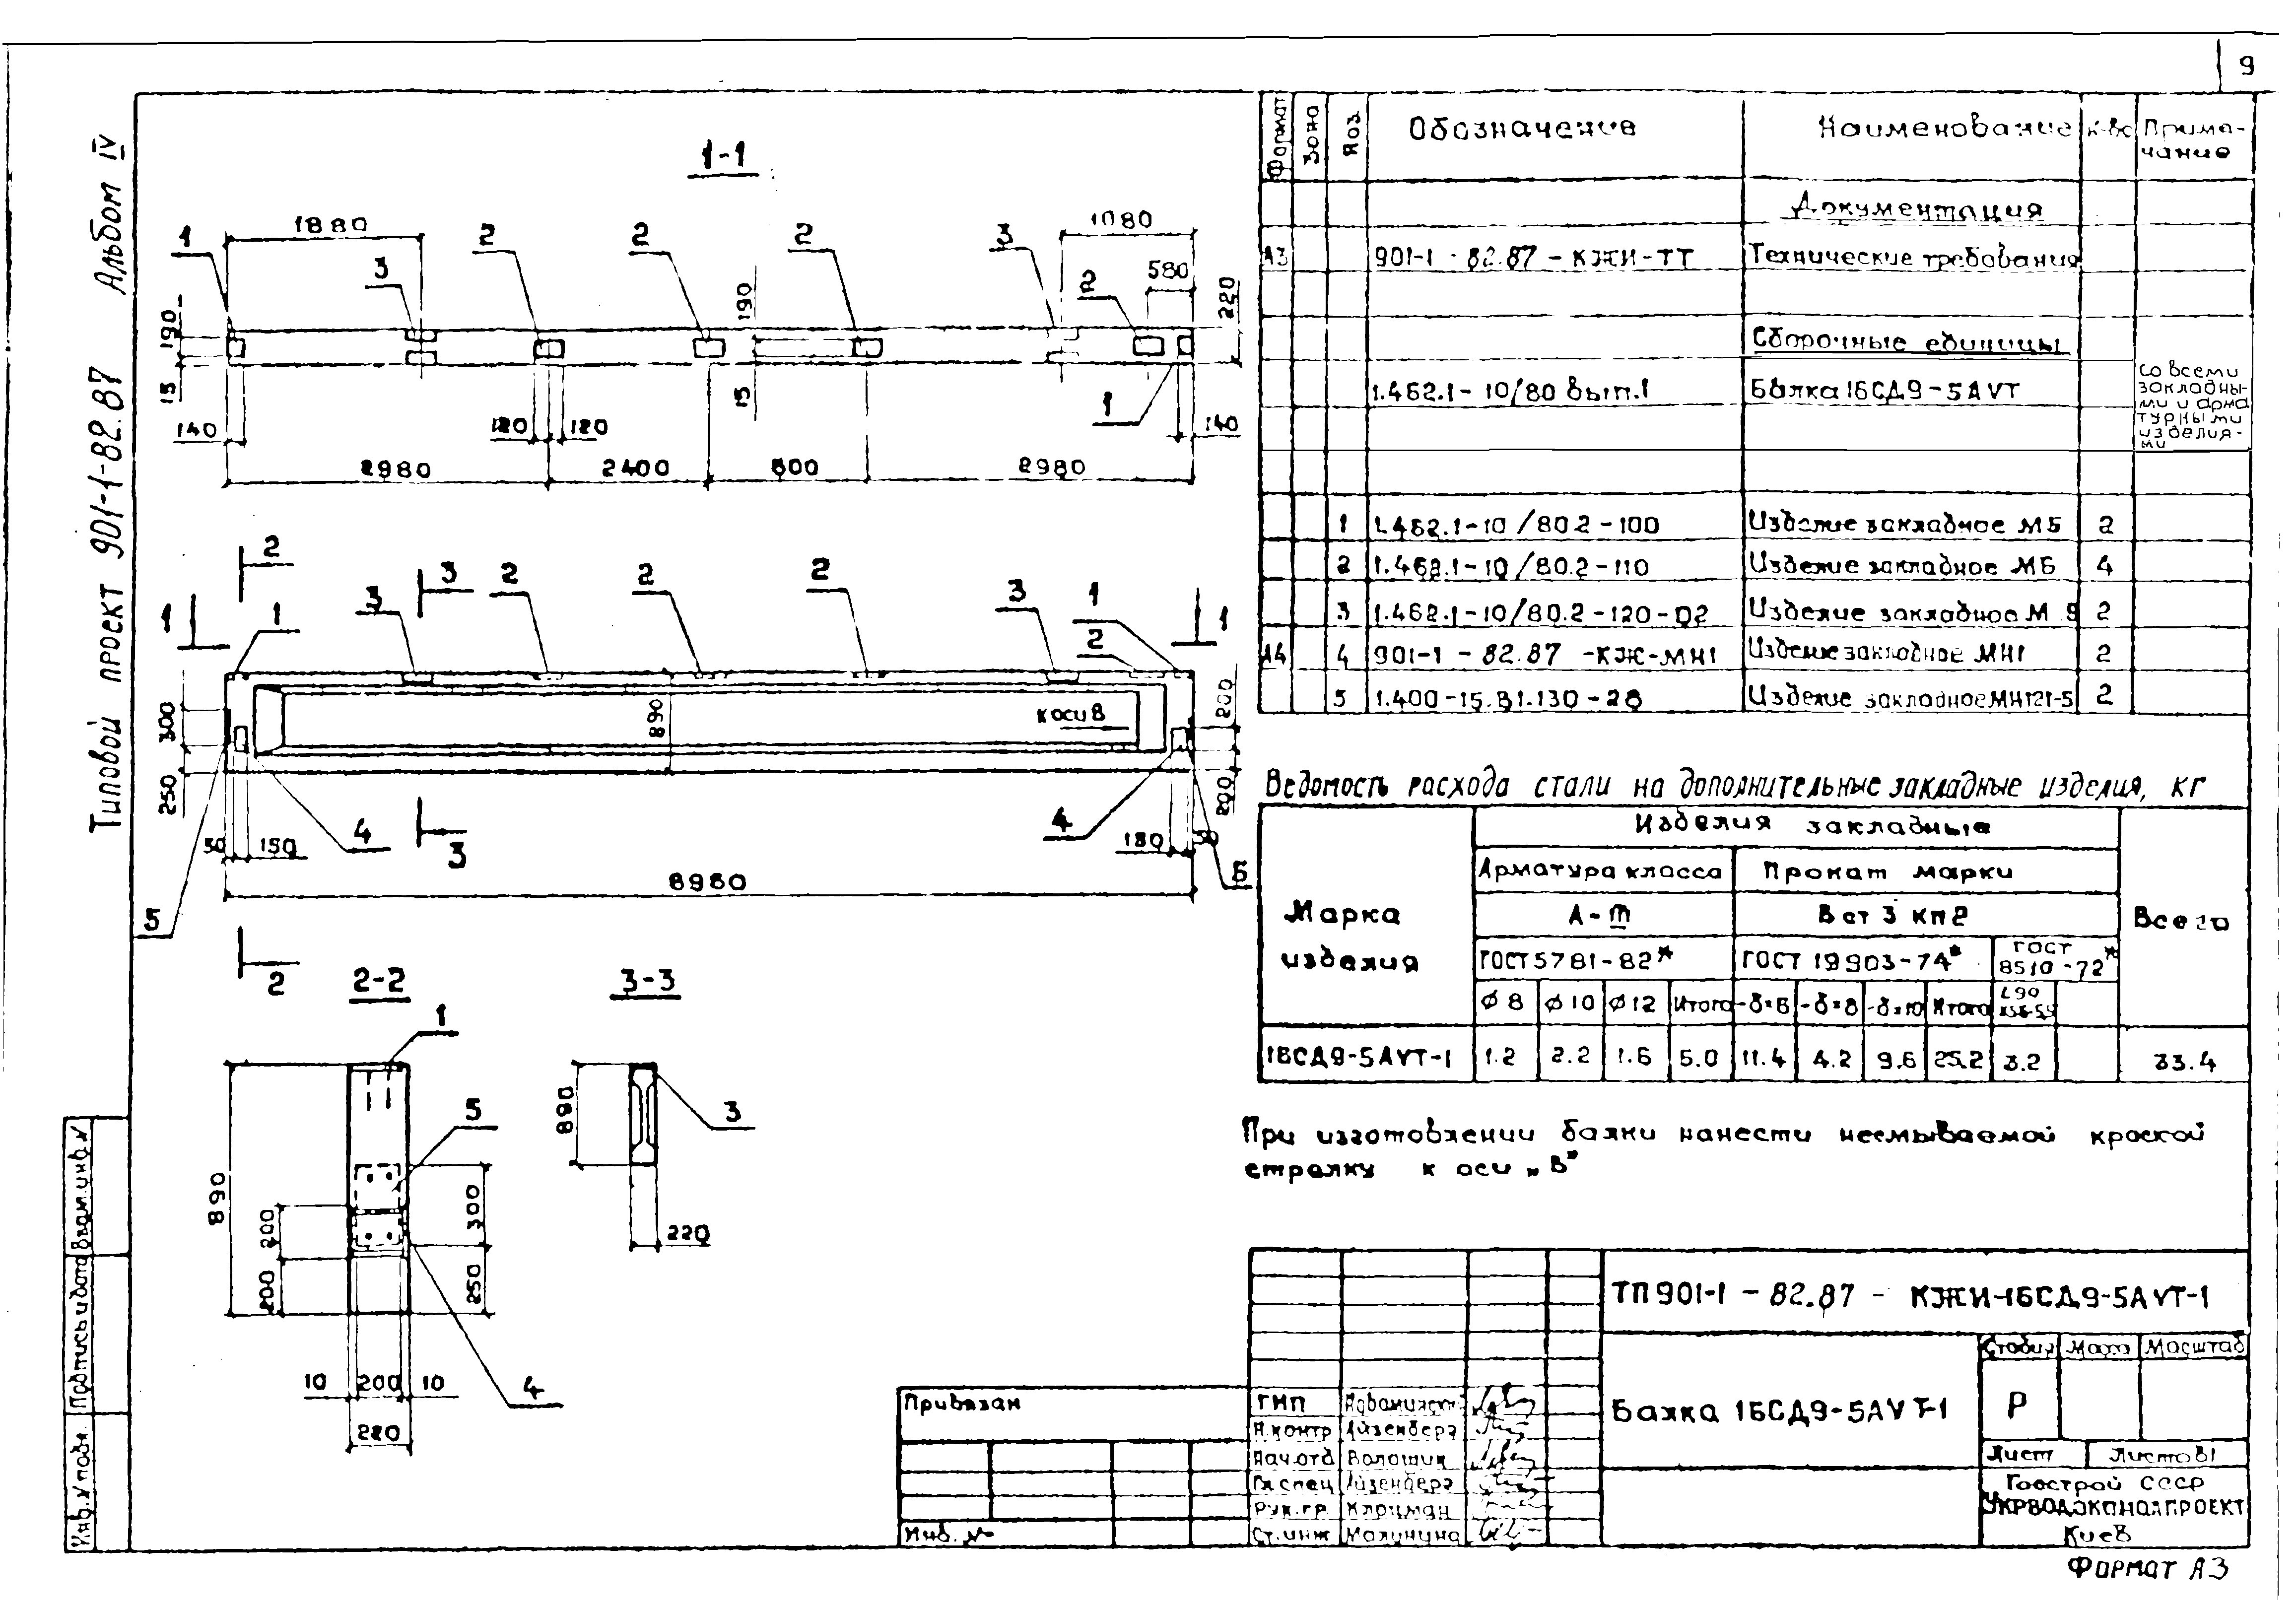 9
Типовой проект 901-1-82.87 Альбом IV
1-1
1880
1080
580
1
3
2
2
2
3
2
1
190
15
190
15
220
140
120
120
140
2980
2400
600
2980
2
3
1
1
3
2
2
2
3
1
2
1
300
250
890
к оси В
200
200
4
4
50
150
3
150
50
8980
5
5
2
2-2
3-3
1
5
890
200
200
300
250
10
200
10
4
220
890
3
220
Формат
Зона
Поз.
Обозначение
Наименование
К-во
Приме-
чание
Документация
А3
901-1-82.87-КЖИ-ТТ
Технические требования
Сборочные единицы
1.462.1-10/80 вып.1
Балка 1БСД9-5АVТ
со всеми
закладны-
ми и арма
турными
изделия-
ми
1 1.462.1-10/80.2-100 Изделие закладное М5 2
2 1.462.1-10/80.2-110 Изделие закладное М6 4
3 1.462.1-10/80.2-120-02 Изделие закладное М 9 2
А4 4 901-1-82.87-КЖ-МН1 Изделие закладное МН1 2
5 1.400-15.В1.130-28 Изделие закладное МН121-5 2
Ведомость расхода стали на дополнительные закладные изделия, кг
Марка
изделия
Изделия закладные
Всего
Арматура класса
Прокат марки
А-III
Вст 3 кп2
ГОСТ 5781-82*
ГОСТ 19903-74*
ГОСТ
8510-72*
Ф8 Ф10 Ф12 Итого -δ=6 -δ=8 -δ=10 Итого L90
1БСД9-5АVТ-1 1.2 2.2 1.6 5.0 11.4 4.2 9.6 25.2 3.2 33.4
При изготовлении балки нанести несмываемой краской
стрелку к оси „В"
ТП901-1-82.87-КЖИ-1БСД9-5АVТ-1
Балка 1БСД9-5АVТ-1
Стадия Масса Масштаб
Р
Лист Листов 1
Госстрой СССР
УКРВОДОКАНАЛПРОЕКТ
Киев
Привязан
Инв. №
ГИП
Н.контр Айзенберг
Нач.отд Волошин
Гл.спец Айзенберг
Рук.гр. Клоцман
Ст.инж Малунина
Взам.инв.№
Подпись и дата
Инв.№ подл.
Формат А3